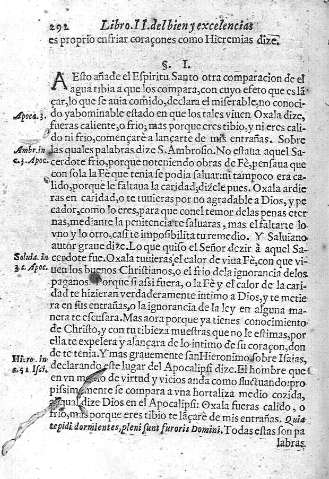 292 Libro. II. del bien y excelencias
es proprio enfriar coraçones como Hieremias dize.
§. I.
A Esto añade el Espiritu Santo otra comparacion de el
agua tibia a que los compara, con cuyo efeto que es lã
çar, lo que se auia comido, declara el miserable, no conoci
Apoca. 3.
do y abominable estado en que los tales viuen Oxala dize,
fueras caliente, o frio, mas porque eres tibio, y ni eres cali
do ni frio, començarè a lançarte de mis entrañas. Sobre
Ambr. in
c. 3. Apoc.
las quales palabras dize S. Ambrosio. No estaua aquel Sa
cerdote frio, porque no teniendo obras de Fè, pensaua que
con sola la Fè que tenia se podia saluar: ni tampoco era ca
lido, porque le faltaua la caridad, dizele pues. O xala ardie
ras en caridad, o te tuuieras por no agradable a Dios, y pe
cador, como lo eres, para que con el temor de las penas eter
nas, mediante la penitencia te saluaras, mas el faltarte lo
vno y lo otro, casi te imposibilita tu remedio. Y Saluiano
autor graue dize. Lo que quiso el Señor dezir à aquel Sa
Saluia. in
3. c. Apoc.
cerdote fue. Oxala tuuieras, el calor de viua Fè, con que vi
uen los buenos Christianos, o el frio de la ignorancia de los
paganos. Porque si assi fuera, o la Fè y el calor de la cari-
dad te hizieran verdaderamente intimo a Dios, y te metie
ra en sus entrañas, o la ignorancia de la ley en alguna ma
nera te escusara. Mas aora porque ya tienes conocimiento
de Christo, y con tu tibieza muestras que no le estimas, por
ella te expelera y alançara de lo intimo de su coraçon, don
de te tenia. Y mas grauemente san Hieronimo sobre Isaias,
Hiero. in
c. 51 Isai.
declarando este lugar del Apocalipsi dize. El hombre que
en vn medio de virtud y vicios anda como fluctuando: pro
pissimamente se compara a vna hortaliza medio cozida,
qual dize Dios en el Apocalipsi: Oxala fueras calido, o
frio, mas porque eres tibio te lãçarè de mis entrañas. Quia
tepidi dormientes, pleni sunt furoris Domini. Todas estas son pa
labras